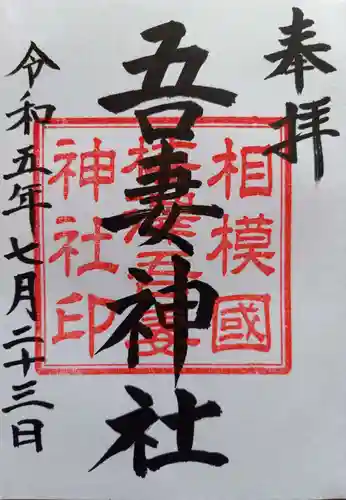 奉拝
吾妻神社
令和五年七月二十三日
相模國
神社印